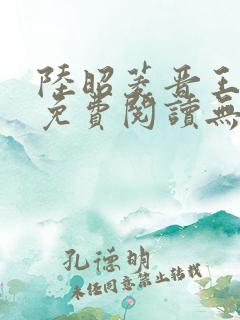 陸昭菱晋王
免費閱讀無
孔德明
未經同意禁止转载